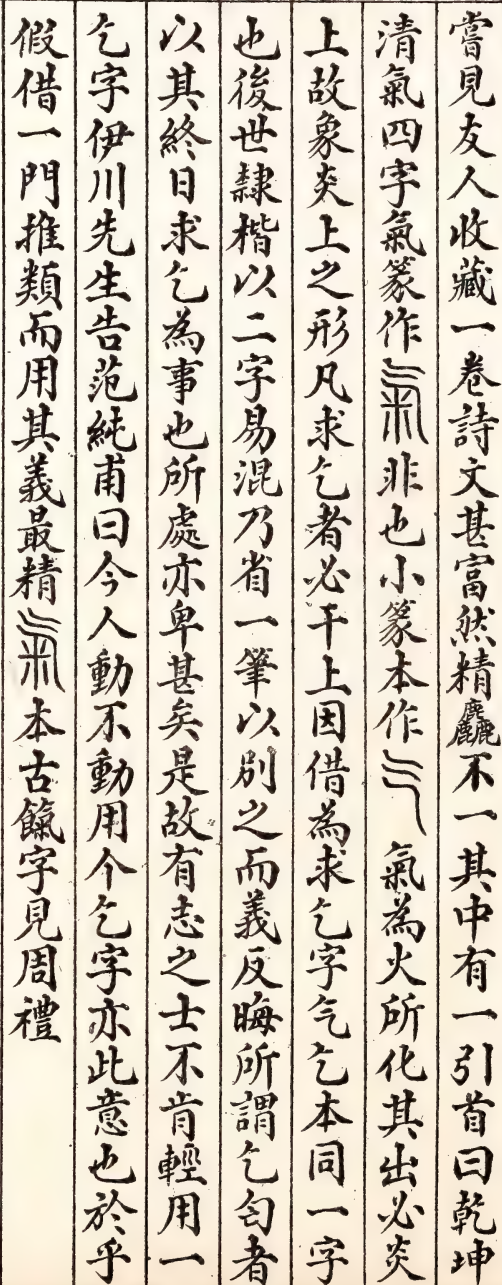 嘗見友人收藏一卷詩文甚富然精麤不一其中有一引首曰乾坤
清氣四字氣篆作氣非也小篆本作气氣為火所化其出必炎
上故象炎上之形凡求乞者必干上因借為求乞字气乞本同一字
也後世隸楷以二字易混乃省一筆以別之而義反晦所謂乞匄者
以其終日求乞為事也所處亦卑甚矣是故有志之士不肯輕用一
乞字伊川先生告范純甫曰今人動不動用今乞字亦此意也於乎
假借一門推類而用其義最精氣本古餼字見周禮